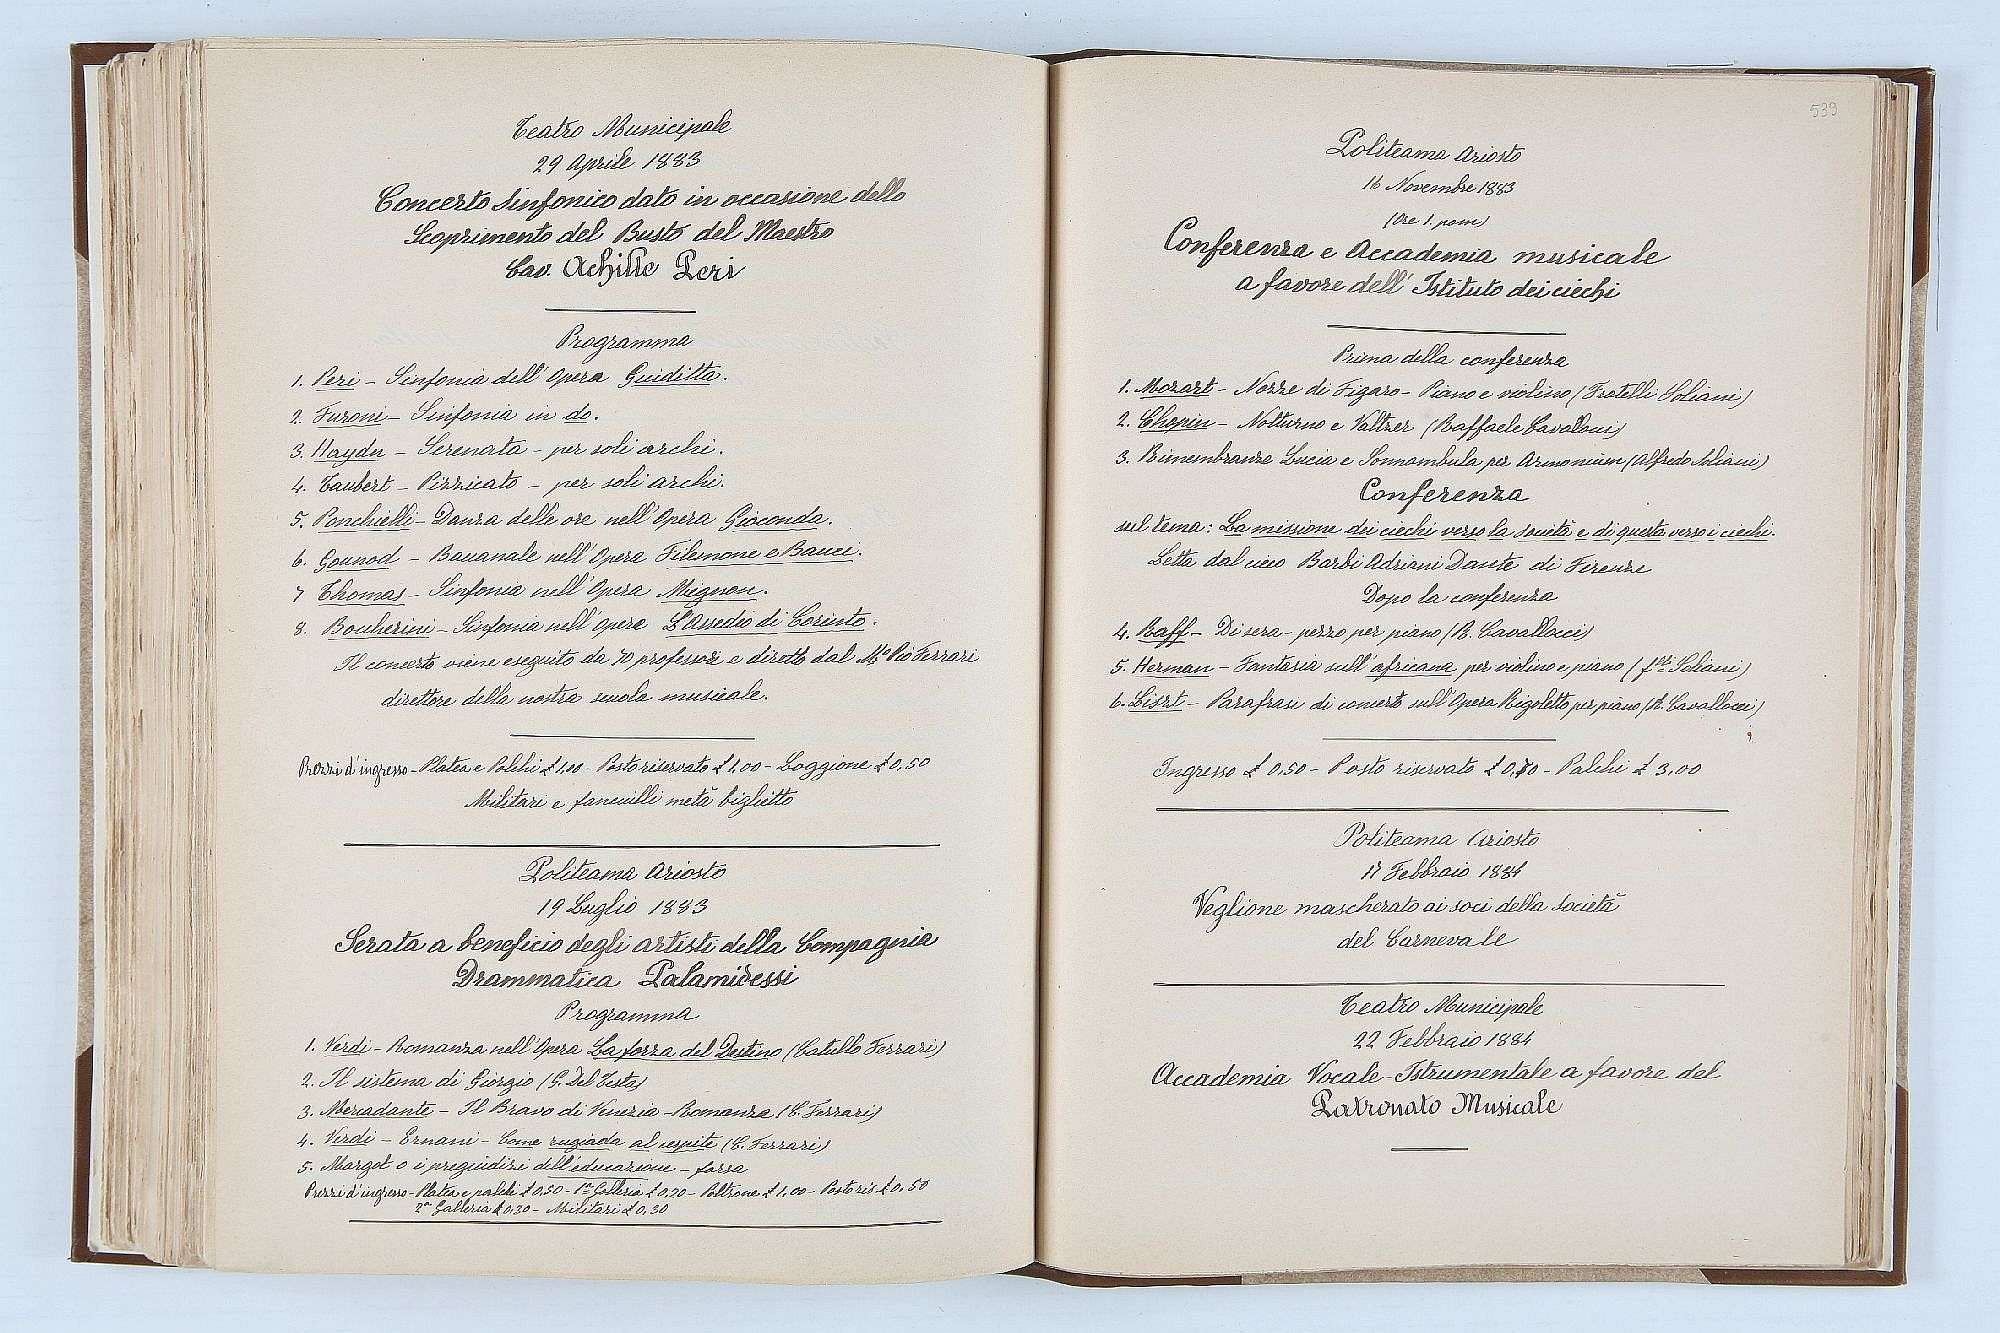 Teatro Municipale
29 Aprile 1883
Concerto Sinfonico dato in occasione dello
Scoprimento del Busto del Maestro
Cav. Achille Peri
Programma
1. Peri – Sinfonia dell'Opera Guiditta.
2. Furoni – Sinfonia in do.
3. Haydn – Serenata – per soli archi.
4. Taubert – Pizzicato – per soli archi.
5. Ponchielli – Danza delle ore nell'Opera Gioconda.
6. Gounod – Baccanale nell'Opera Filemone e Bauci.
7 Thomas – Sinfonia nell'Opera Mignon.
8. Boccherini – Sinfonia nell'opera L'Assedio di Corinto.
Il concerto viene eseguito da 70 professori e diretto dal Mº Pio Ferrari
direttore della nostra scuola musicale.
Prezzi d'ingresso – Platea e Palchi £ 1,00 – Posto riservato £ 1,00 – Loggione £ 0,50
Militari e fanciulli metà biglietto
Politeama Ariosto
19 Luglio 1883
Serata a beneficio degli artisti della Compagnia
Drammatica Palamidessi
Programma
1. Verdi – Romanza nell'Opera La forza del Destino (Catullo Ferrari)
2. Il sistema di Giorgio (G. Del Testa)
3. Mercadante – Il Bravo di Venezia – Romanza (C. Ferrari)
4. Verdi – Ernani – Come rugiada al cespite (C. Ferrari)
5. Margot o i pregiudizi dell'educazione – farsa
Prezzi d'ingresso – Platea e palchi £ 0,50 – 1ª Galleria £ 0,70 – Poltrone £ 1,00 – Posto ris £ 0,50
2ª Galleria £ 0,30 – Militari £ 0,30
539
Politeama Ariosto
16 Novembre 1883
(Ore 1. pom)
Conferenza e Accademia musicale
a favore dell'Istituto dei ciechi
Prima della conferenza
1. Mozart – Nozze di Figaro – Piano e violino (Fratelli Soliani)
2. Chopin – Notturno e Valtzer (Raffaele Cavallocci)
3. Rimembranze Lucia e Sonnambula per Armonium (Alfredo Soliani)
Conferenza
sul tema: La missione dei ciechi verso la società e di questa verso i ciechi.
Letta dal cieco Barbi Adriani Dante di Firenze
Dopo la conferenza
4. Raff – Di sera – pezzo per piano (R. Cavallocci)
5. Herman – Fantasia sull'africana per violino e piano (f.lli Soliani)
6. Liszt – Parafrasi di concerto sull'Opera Rigoletto per piano (R. Cavallocci)
Ingresso £ 0,50 – Posto riservato £ 0,70 – Palchi £ 3,00
Politeama Ariosto
17 Febbraio 1884
Veglione mascherato ai soci della Società
del Carnevale
Teatro Municipale
22 Febbraio 1884
Accademia Vocale-Istrumentale a favore del
Patronato Musicale